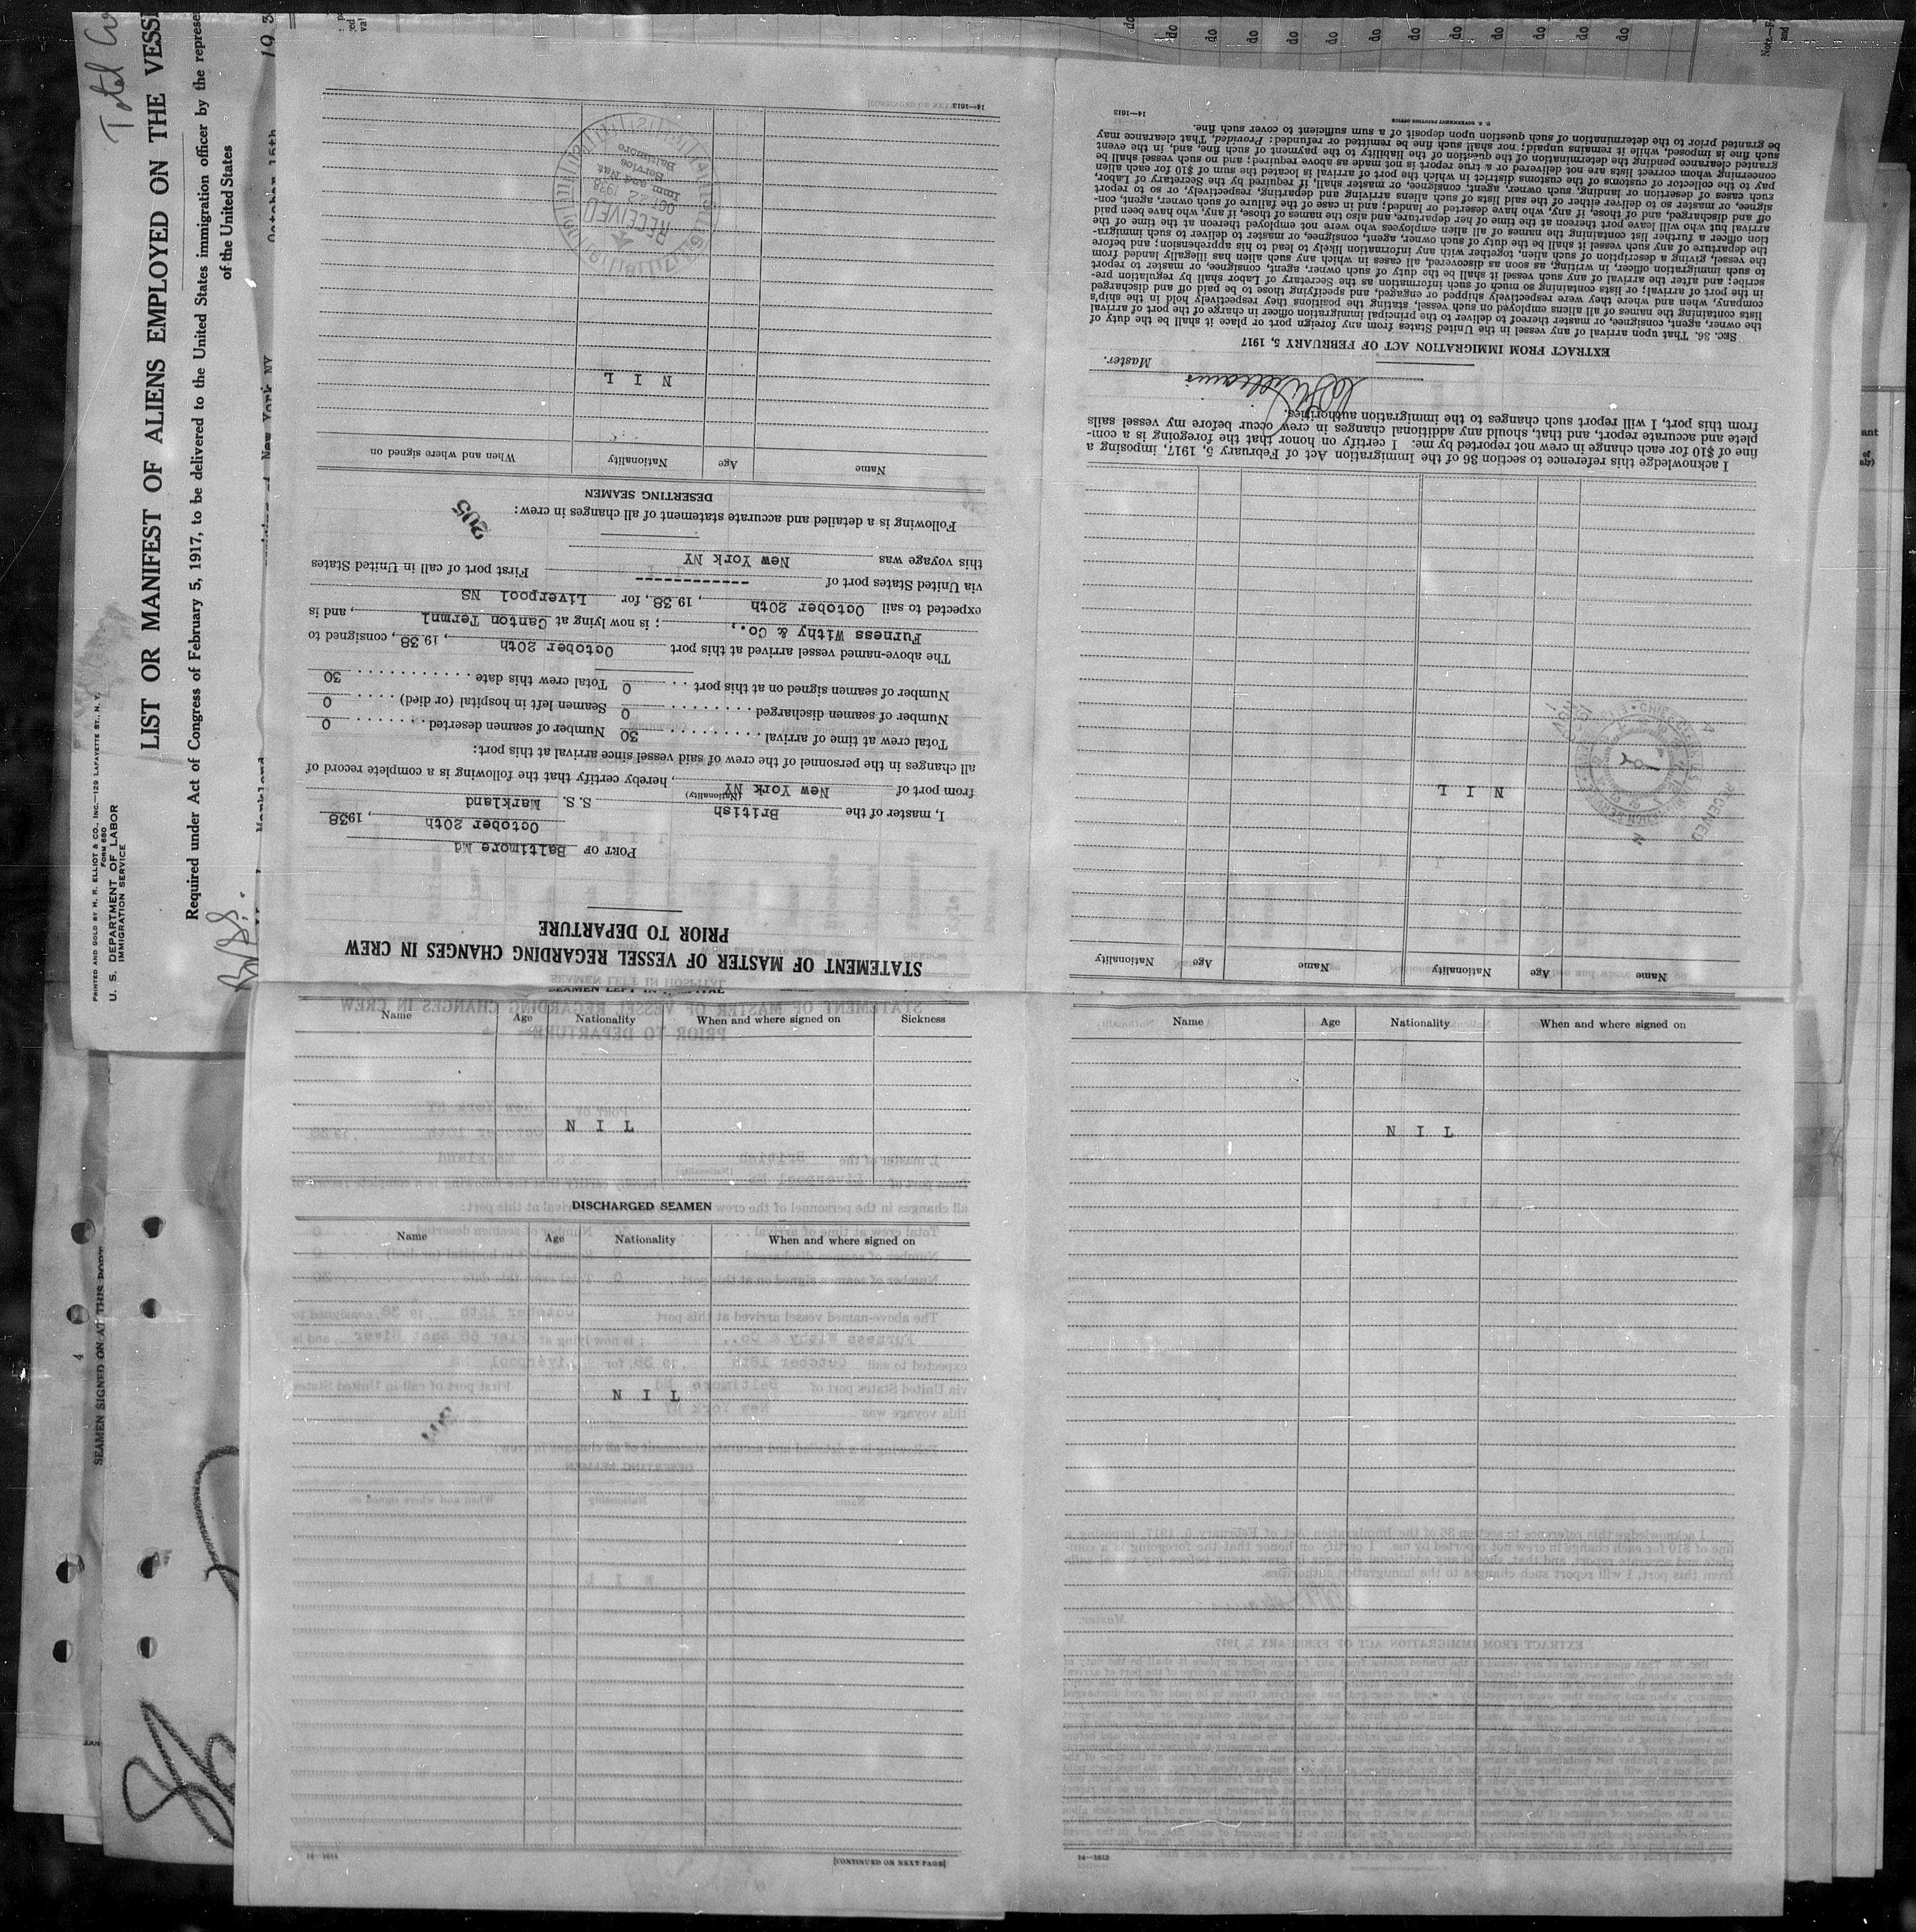 Total
LIST OR MANIFEST OF ALIENS EMPLOYED ON THE VESS
Required under Act of Congress of February 5, 1917, to be delivered to the United States immigration officer by the represe
of the United States
PRINTED AND SOLD BY H. R. ELLIOT & CO., INC.—129 LAFAYETTE ST., N. Y.
FORM 680
U. S. DEPARTMENT OF LABOR
IMMIGRATION SERVICE
New York NY
October 15th
193
STATEMENT OF MASTER OF VESSEL REGARDING CHANGES IN CREW
PRIOR TO DEPARTURE
PORT OF Baltimore Md
October 20th, 1938
I, master of the British S. S. Markland
(Nationality)
from port of New York NY, hereby certify that the following is a complete record of
all changes in the personnel of the crew of said vessel since arrival at this port:
Total crew at time of arrival 30 Number of seamen deserted 0
Number of seamen discharged 0 Seamen left in hospital (or died) 0
Number of seamen signed on at this port 0 Total crew this date 30
The above-named vessel arrived at this port October 20th, 1938, consigned to
Furness Withy & Co., ; is now lying at Canton Termnl, and is
expected to sail October 20th, 1938, for Liverpool NS
via United States port of ------------ First port of call in United States
this voyage was New York NY
205
Following is a detailed and accurate statement of all changes in crew:
DESERTING SEAMEN
Name Age Nationality When and where signed on
N I L
RECEIVED
OCT 22 1938
Imm and Nat
Service
Baltimore
14—1613
Name Age Nationality Name Age Nationality
N I L
RECEIVED
I acknowledge this reference to section 36 of the Immigration Act of February 5, 1917, imposing a
fine of $10 for each change in crew not reported by me. I certify on honor that the foregoing is a com-
plete and accurate report, and that, should any additional changes in crew occur before my vessel sails
from this port, I will report such changes to the immigration authorities.
Williams
Master.
EXTRACT FROM IMMIGRATION ACT OF FEBRUARY 5, 1917
SEC. 36. That upon arrival of any vessel in the United States from any foreign port or place it shall be the duty of
the owner, agent, consignee, or master thereof to deliver to the principal immigration officer in charge of the port of arrival
lists containing the names of all aliens employed on such vessel, stating the positions they respectively hold in the ship's
company, when and where they were respectively shipped or engaged, and specifying those to be paid off and discharged
in the port of arrival; or lists containing so much of such information as the Secretary of Labor shall by regulation pre-
scribe; and after the arrival of any such vessel it shall be the duty of such owner, agent, consignee, or master to report
to such immigration officer, in writing, as soon as discovered, all cases in which any such alien has illegally landed from
the vessel, giving a description of such alien, together with any information likely to lead to his apprehension; and before
the departure of any such vessel it shall be the duty of such owner, agent, consignee, or master to deliver to such immigra-
tion officer a further list containing the names of all alien employees who were not employed thereon at the time of the
arrival but who will leave port thereon at the time of her departure, and also the names of those, if any, who have been paid
off and discharged, and of those, if any, who have deserted or landed; and in case of the failure of such owner, agent, con-
signee, or master so to deliver either of the said lists of such aliens arriving and departing, respectively, or so to report
such cases of desertion or landing, such owner, agent, consignee, or master shall, if required by the Secretary of Labor,
pay to the collector of customs of the customs district in which the port of arrival is located the sum of $10 for each alien
concerning whom correct lists are not delivered or a true report is not made as above required; and no such vessel shall be
granted clearance pending the determination of the question of the liability to the payment of such fine, and, in the event
such fine is imposed, while it remains unpaid; nor shall such fine be remitted or refunded: Provided, That clearance may
be granted prior to the determination of such question upon deposit of a sum sufficient to cover such fine.
U. S. GOVERNMENT PRINTING OFFICE
14—1613
do do do do do do do do do do do do do
SEAMEN LEFT IN HOSPITAL
Name Age Nationality When and where signed on Sickness
N I L
DISCHARGED SEAMEN
Name Age Nationality When and where signed on
N I L
14—1613
[CONTINUED ON NEXT PAGE]
SEAMEN SIGNED ON AT THIS PORT
Name Age Nationality When and where signed on
N I L
14—1613
4